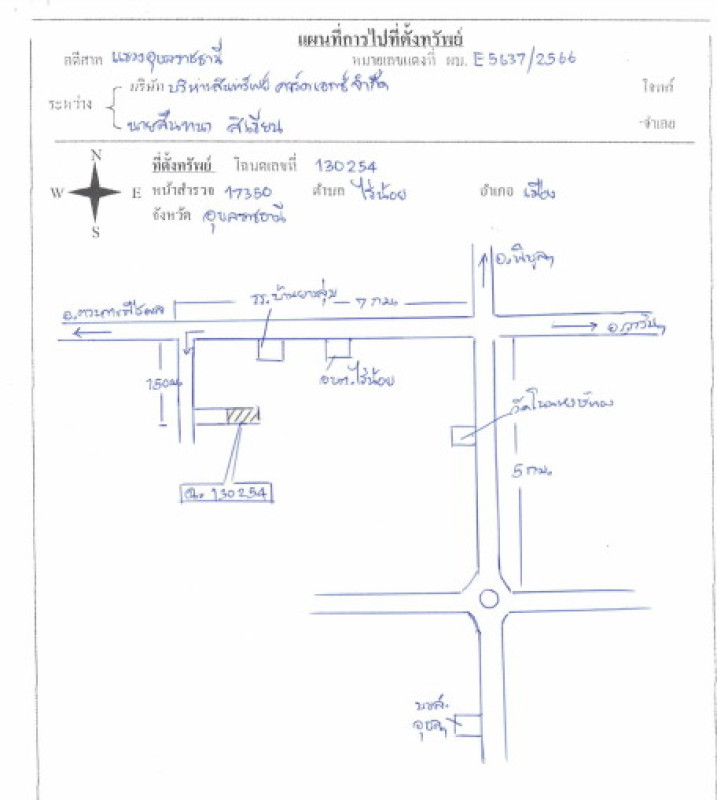 แผนที่การไปที่ตั้งทรัพย์
คดีศาล แขวงอุบลราชธานี หมายเลขแดงที่ ผบ. E5637/2566
ระหว่าง { บริษัท บริหารสินทรัพย์ คาร์ดเอกซ์ จำกัด โจทก์
นายสันทนา จำเลย
N
W E
S
ที่ตั้งทรัพย์ โฉนดเลขที่ 130254
หน้าสำรวจ 17350 ตำบล ไร่น้อย อำเภอ เมือง
จังหวัด อุบลราชธานี
อ.พิบูลฯ
รร.บ้านยางลุ่ม 7 กม.
อ.ตระการพืชผล
อ.วารินฯ
150ม.
อบต.ไร่น้อย
วัดโนนหงษ์ทอง
5 กม.
ฉ. 130254
บขส.
อุบลฯ